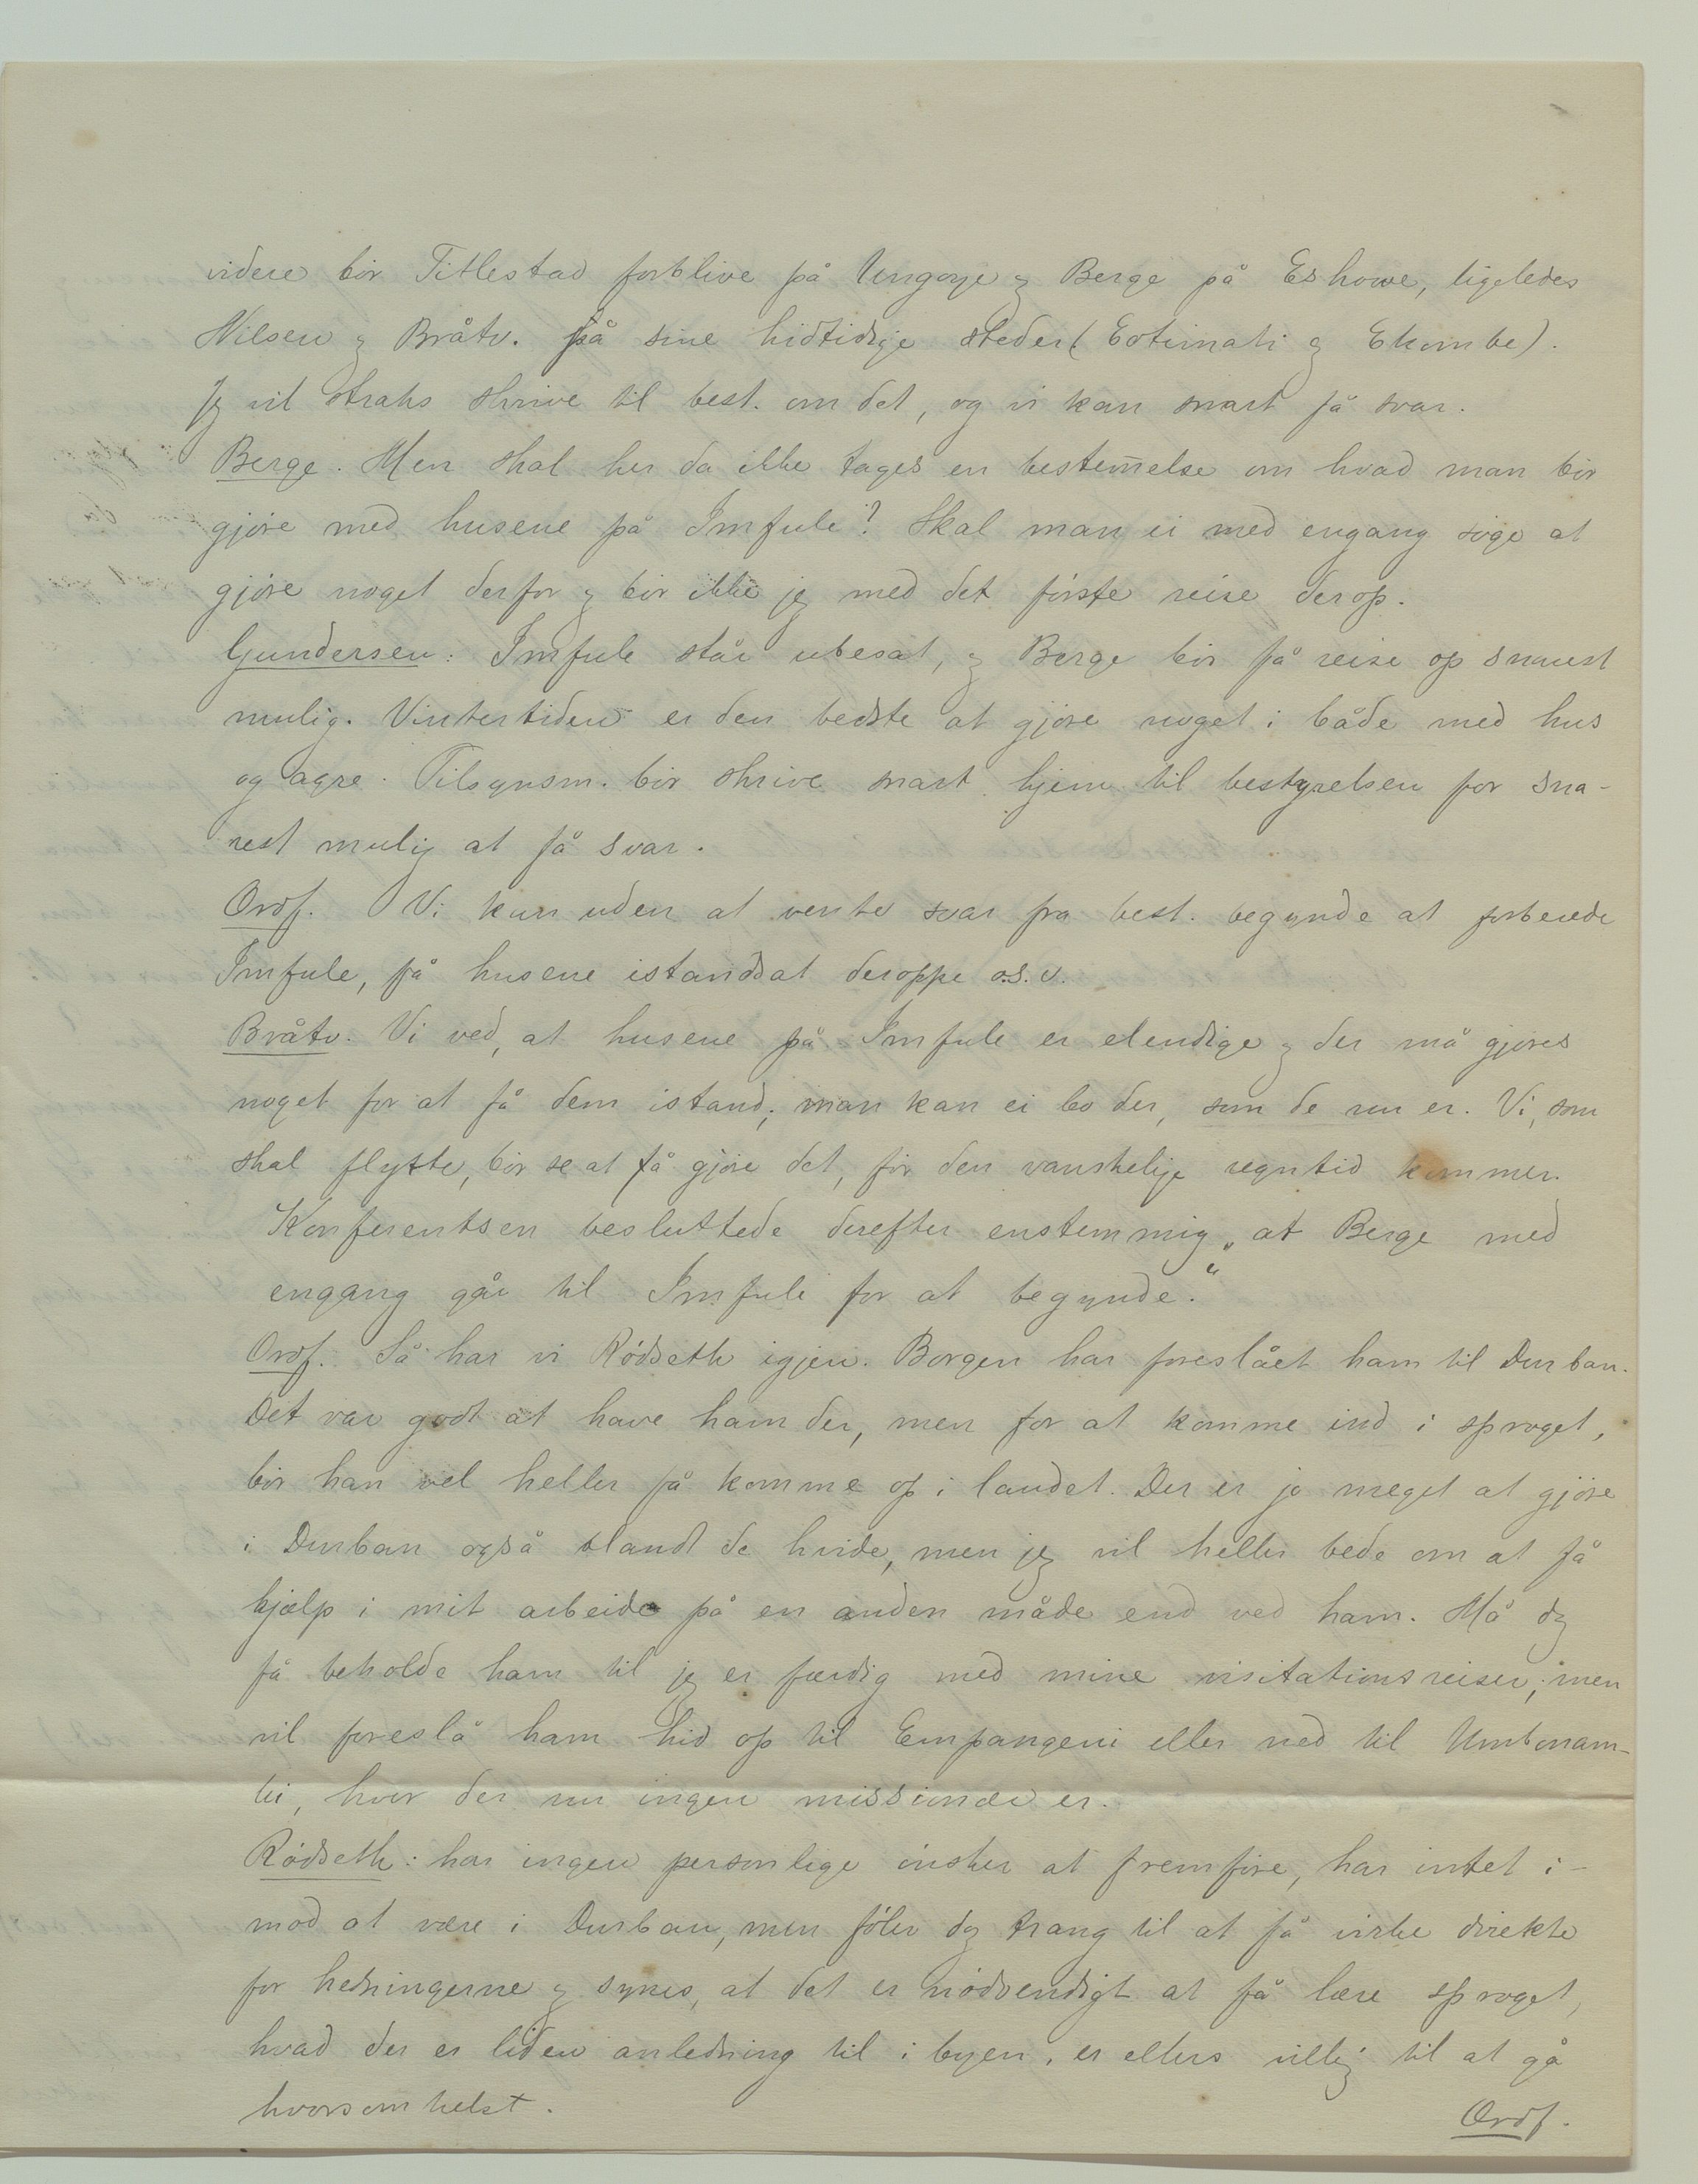 videre bör Titlestad forblive på Ungoye og Berge på Eshowe, ligeledes
Nilsen og Bråtv. på sine hidtidige steder (Eotimati og Ekombe).
Jeg vil straks skrive til best. om det, og vi kan snart få svar.
Berge. Men skal her da ikke tages en bestem̄else om hvad man bör
gjöre med husene på Imfule? Skal man ei med engang söge at
gjöre noget derfor og bör ikke jeg med det förste reise derop.
Gundersen: Imfule står ubesat, og Berge bör få reise op snarest
mulig. Vintertiden er den bedste at gjöre noget i både med hus
og agre. Tilsynsm. bör skrive snart hjem til bestyrelsen for sna-
rest mulig at få svar.
Ordf. Vi kan uden at vente svar fra best. begynde at forberede
Imfule, få husene istandsat deroppe o.s.v.
Bråtv. Vi ved, at husene på Imfule er elendige og der må gjöres
noget for at få dem istand; man kan ei bo der, som de nu er. Vi, som
skal flytte, bör se at få gjöre det, för den vanskelige regntid kommer.
Konferentsen besluttede derefter enstemmig „at Berge med
engang går til Imfule for at begynde.“
Ordf. Så har vi Rödseth igjen. Borgen har foreslået ham til Durban.
Det var godt at have ham der, men for at komme ind i sproget,
bör han vel heller få komme op i landet. Der er jo meget at gjöre
i Durban også blandt de hvide, men jeg vil heller bede om at få
hjælp i mit arbeide på en anden måde end ved ham. Må dog
få beholde ham til jeg er færdig med mine visitationsreiser; men
vil foreslå ham hid op til Empangeni eller ned til Umbonam-
bi, hvor der nu ingen missionær er.
Rödseth: har ingen personlige önsker at fremföre, har intet i-
mod at være i Durban, men föler dog trang til at få virke direkte
for hedningerne og synes, at det er nödvendigt at få lære sproget,
hvad der er liden anledning til i byen, er ellers villig til at gå
hvorsomhelst.
Ordf.